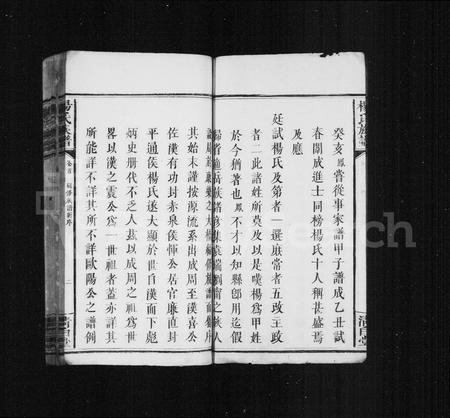 楊氏族譜
清白堂
癸亥鳳嘗從事家譜甲子譜成乙丑試
春闈成進士同榜楊氏十人稱甚盛焉
及應
廷試楊氏及第者一選庶常者五改主政
者二此諸姓所莫及以是嘆楊為甲姓
於今猶著也鳳不才以知縣卽用迄假
其始末謹按源流系出成周至漢喜公
佐漢有功封赤泉侯惲公居官廉直封
平通侯楊氏遂大顯於世自漢而下彪
炳史册代不乏人茲以成周之祖為世
畧以漢之震公為一世祖者蓋亦詳其
所能詳不詳其所不詳歐陽公之譜例
楊氏族譜
卷首
二
清白堂